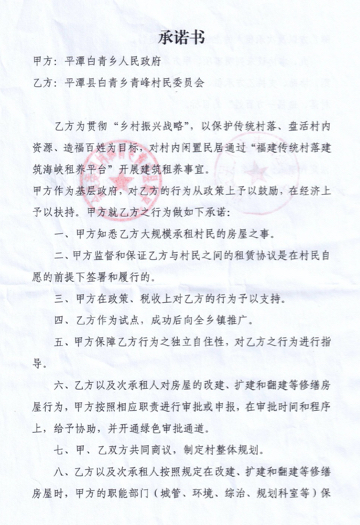 承诺书
甲方：平潭白青乡人民政府
乙方：平潭县白青乡青峰村民委员会
乙方为贯彻“乡村振兴战略”，以保护传统村落、盘活村内
资源、造福百姓为目标，对村内闲置民居通过“福建传统村落建
筑海峡租养平台”开展建筑租养事宜。
甲方作为基层政府，对乙方的行为从政策上予以鼓励，在经济上
予以扶持。甲方就乙方之行为做如下承诺：
一、甲方知悉乙方大规模承租村民的房屋之事。
二、甲方监督和保证乙方与村民之间的租赁协议是在村民自
愿的前提下签署和履行的。
三、甲方在政策、税收上对乙方的行为予以支持。
四、乙方作为试点，成功后向全乡镇推广。
五、甲方保障乙方行为之独立自住性，对乙方之行为进行指
导。
六、乙方以及次承租人对房屋的改建、扩建和翻建等修缮房
屋行为，甲方按照相应职责进行审批或申报，在审批时间和程序
上，给予协助，并开通绿色审批通道。
七、甲、乙双方共同商议，制定村整体规划。
八、乙方以及次承租人按照规定在改建、扩建和翻建等修缮
房屋时，甲方的职能部门（城管、环境、综治、规划科室等）保